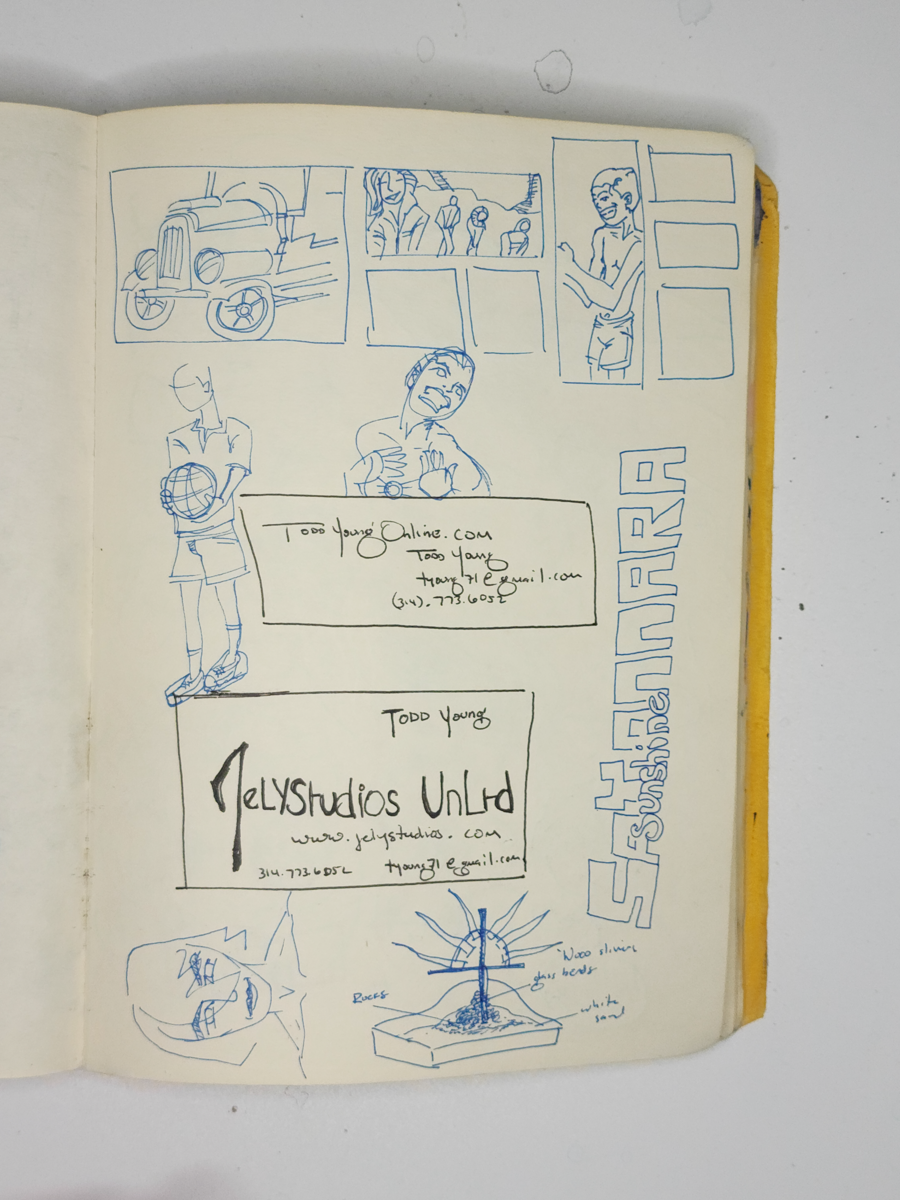 Todd Young Online.com
Todd Young
tyoung71@gmail.com
(314).773.6052
Todd Young
JeLYStudios UnLtd
www.jelystudios.com
314.773.6052 tyoung71@gmail.com
Sunshine
Wood
glass beads
Rocks
white
sand